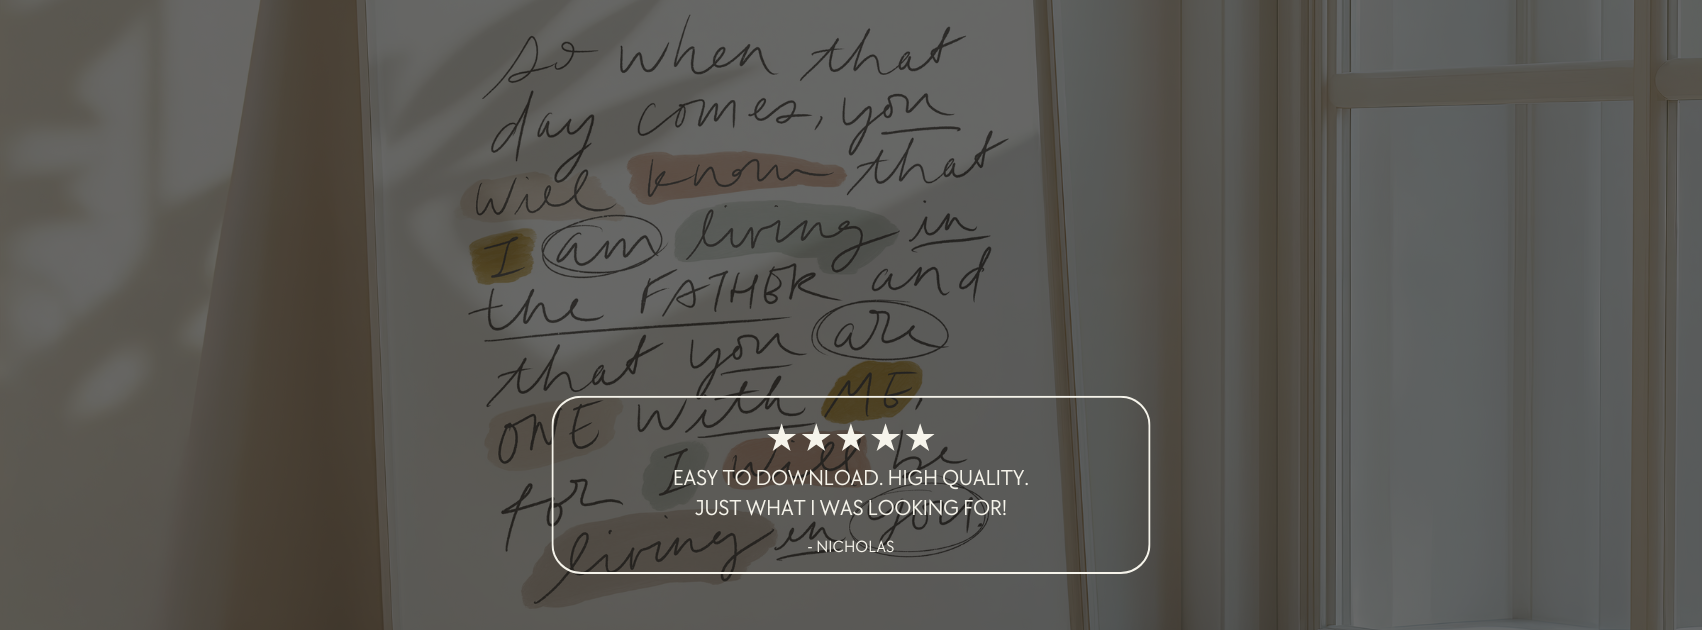 so when that
day comes, you
will know that
I am living in
the FATHER and
that you are
ONE with ME,
for I will be
living in you.
★★★★★
EASY TO DOWNLOAD. HIGH QUALITY.
JUST WHAT I WAS LOOKING FOR!
- NICHOLAS